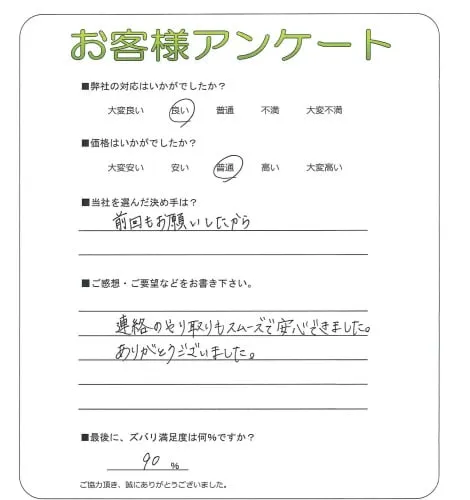 お客様アンケート
■弊社の対応はいかがでしたか？
大変良い 良い 普通 不満 大変不満
■価格はいかがでしたか？
大変安い 安い 普通 高い 大変高い
■当社を選んだ決め手は？
前回もお願いしたから
■ご感想・ご要望などをお書き下さい。
連絡のやり取りもスムーズで安心できました。
ありがとうございました。
■最後に、ズバリ満足度は何%ですか？
90 %
ご協力頂き、誠にありがとうございました。